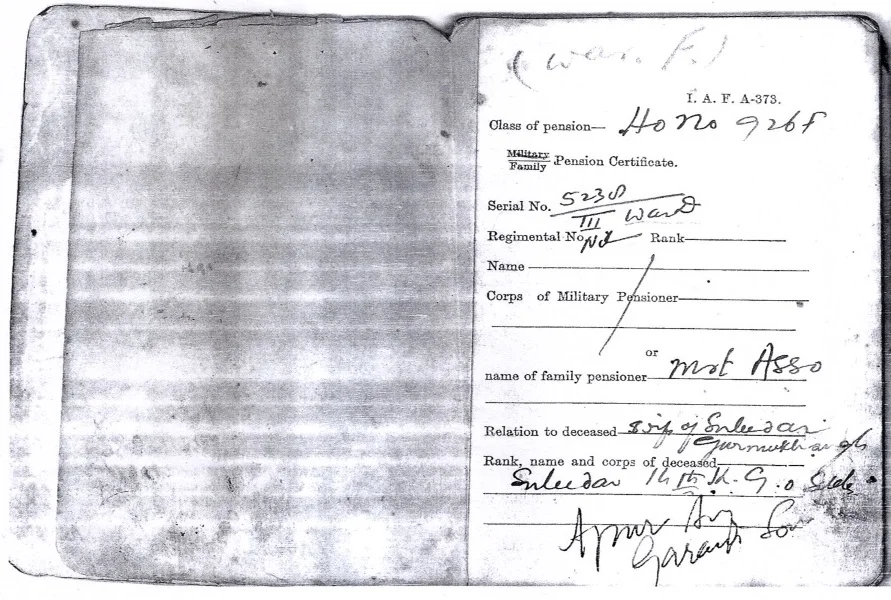 (War. F.)
I. A. F. A-373.
Class of pension— HO No 926 F
Military
Family Pension Certificate.
Serial No. 5238
III Ward
Regimental No. Rank
Name
Corps of Military Pensioner
or
name of family pensioner Mst Asso
Relation to deceased wife of Subedar
Gurmukh Singh
Rank, name and corps of deceased
Subedar 14th